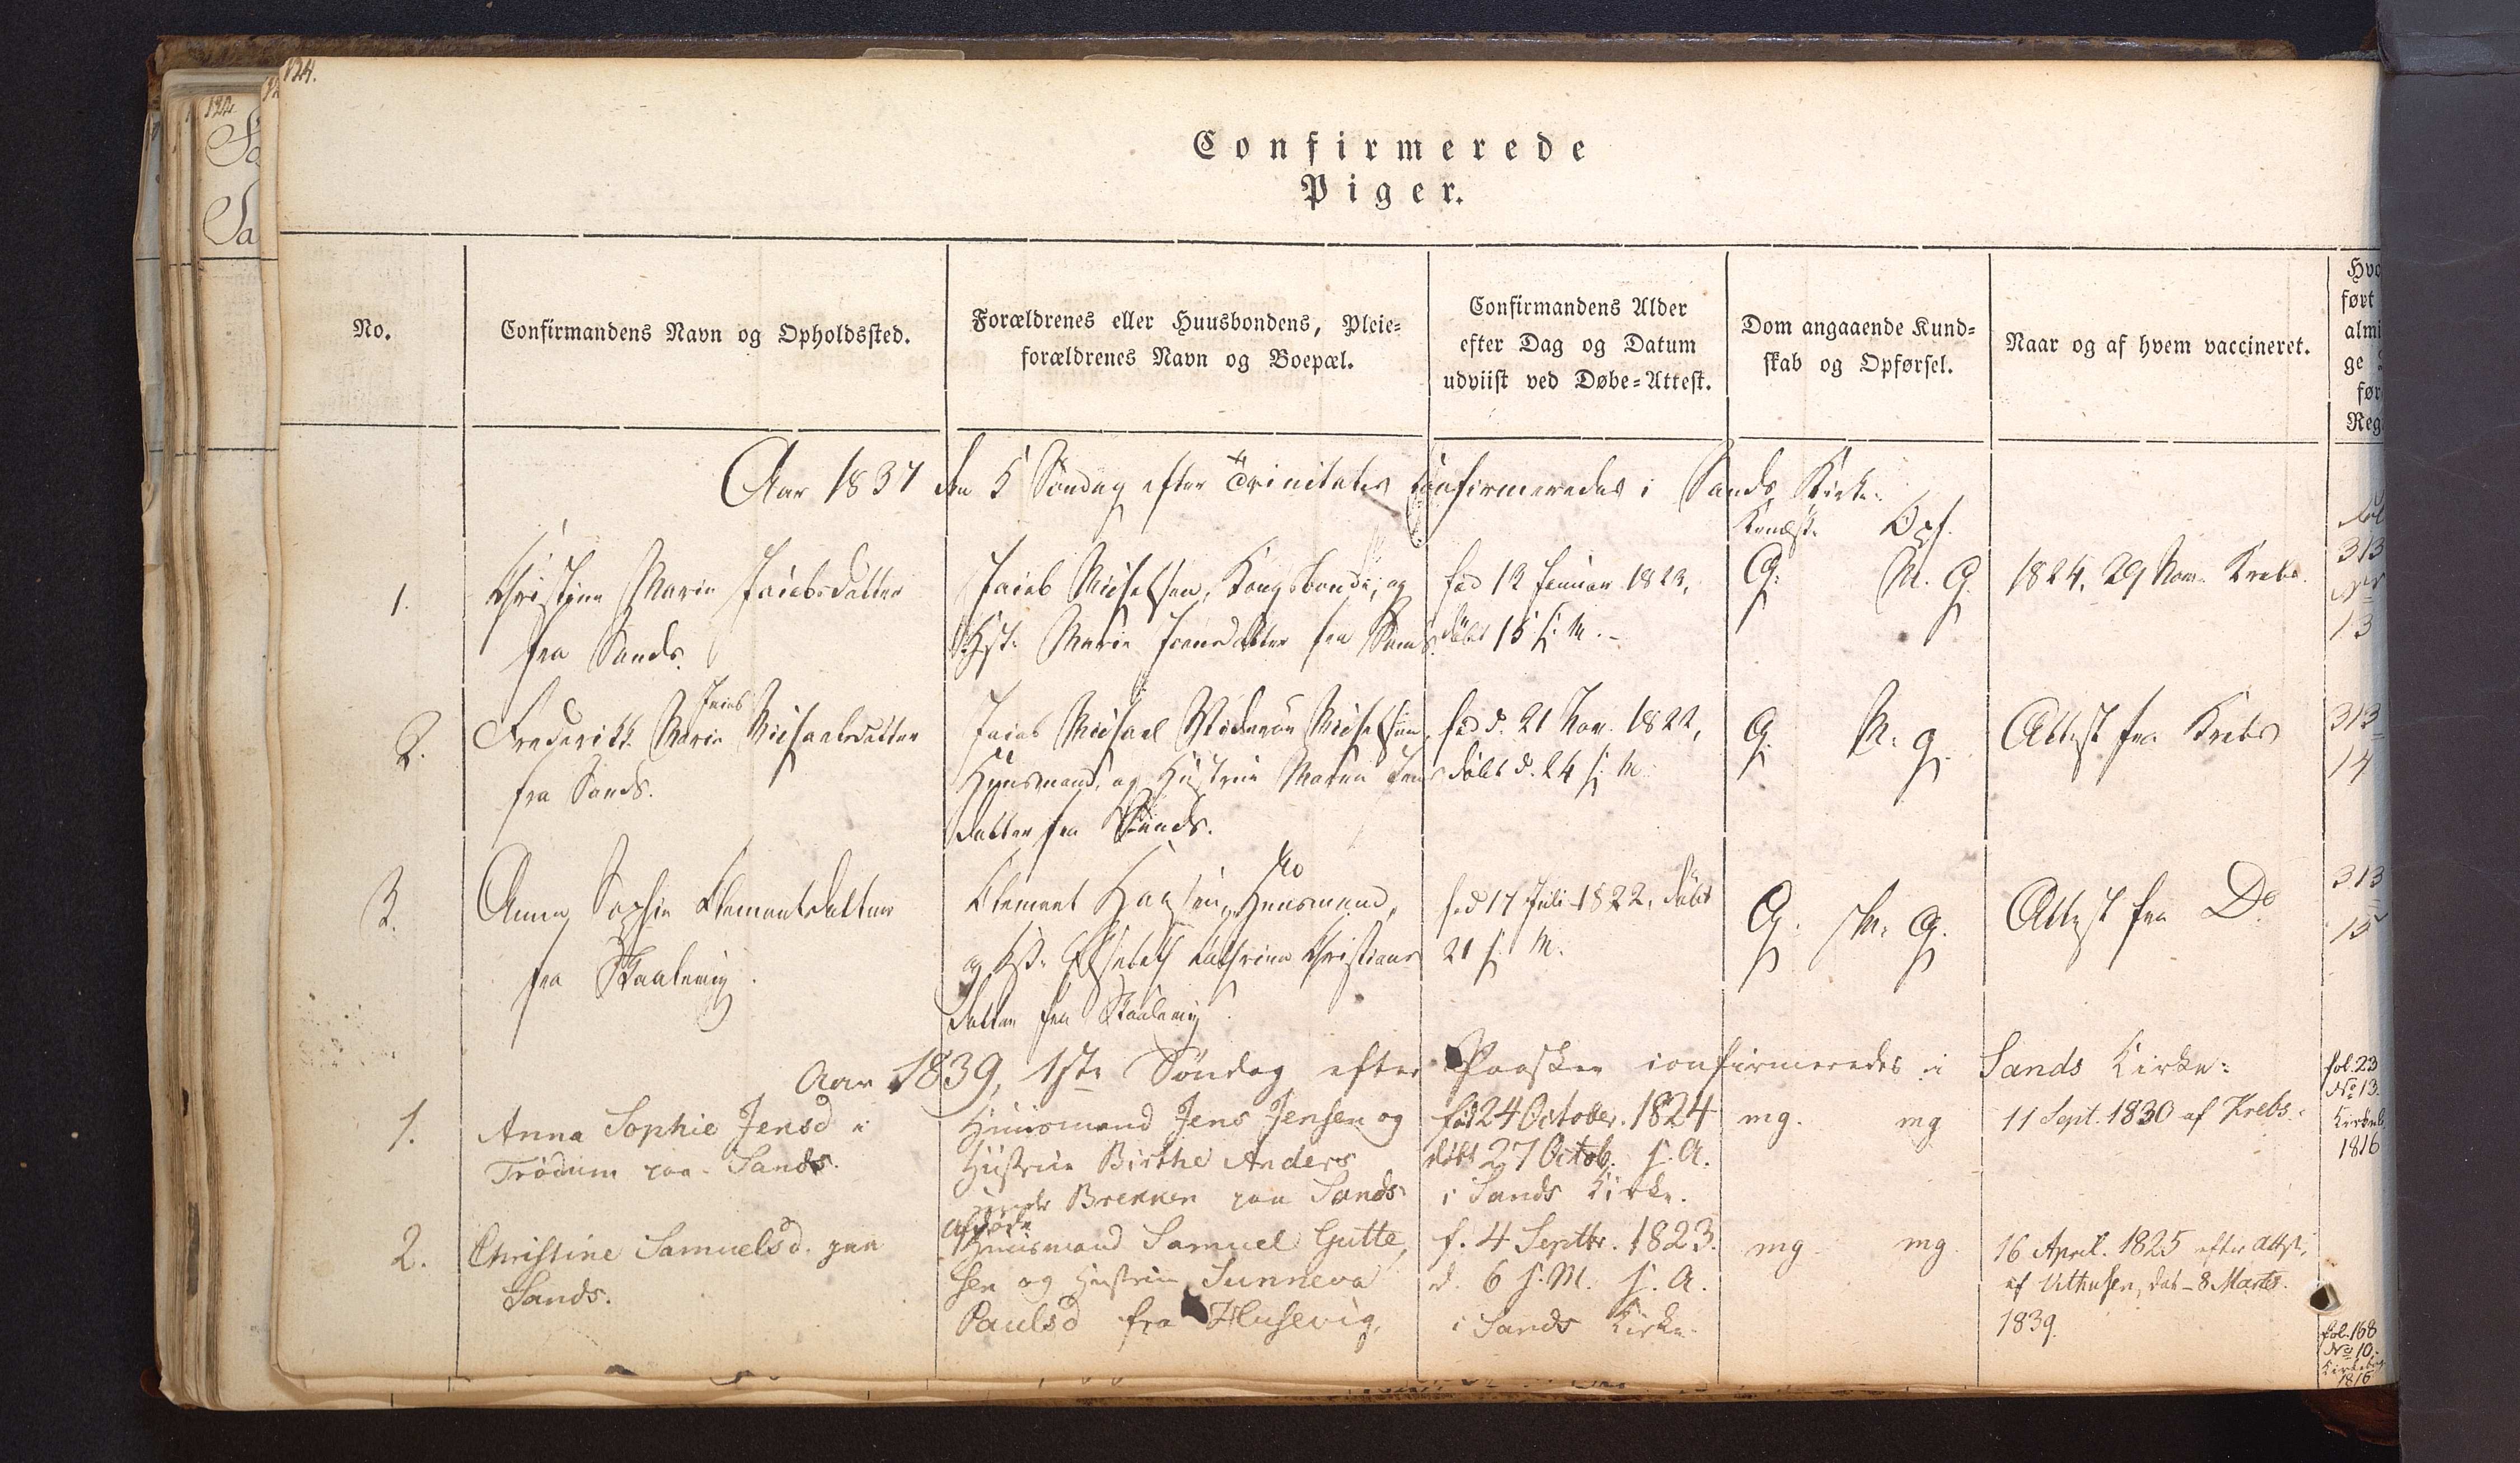 124.
122
Sa
Sa
Confirmerede
Piger.
No.
Confirmandens Navn og Opholdssted.
Forældrenes eller Huusbondens, Pleie=
forældrenes Navn og Boepæl.
Confirmandens Alder
efter Dag og Datum
udviist ved Døbe=Attest.
Dom angaaende Kund=
skab og Opførsel.
Naar og af hvem vaccineret.
Hvo
ført
almi
ge
før
Reg
Aar 1837 den 5 Søndag efter Trinitatis confirmeredes i Sands Kirke.
Kundsk. Opf.
1.
Christine Marie Jacobsdatter
fra Sands.
Jacob Michelsen, Kongsbonde, og
Hst. Marie Joensdatter fra Sands.
fød 12 Januar 1823,
døbt 15 s. M.
G. M. G.
1824. 29 Nov. Krebs.
313
13
2.
Frederikke Marie Jacob Michaelsdatter
fra Sands.
Jacob Michael Michelsen
Huusmand, og Hustrue Maren Jens
datter fra Sands.
fød d. 21 Nov. 1822,
døbt d. 24 s. M.
G. M. g.
Attest fra Krebs
313
14
3.
Anna Sophie Clementsdatter
fra Skaalevig.
Clement Huusmand,
og Hst. Elsebeth Cathrina Christians
datter fra Skaalevig.
fød 17 Juli 1822, døbt
21 s. M.
G. M. G.
Attest fra Do
313
15
Aar 1839, 1ste Søndag efter Paaske confirmeredes i Sands Kirke:
1.
Anna Sophie Jensd i
Trödum paa Sands.
Huusmand Jens Jensen og
Hustrue Birthe Anders
Brekken paa Sands
fød 24 October. 1824
døbt 27 Octob. s. A.
i Sands Kirke.
mg. mg
11 Sept. 1830 af Krebs.
fol. 23
No 13.
Kirkeb.
1816
2.
Christine Samuelsd. paa
Sands.
Afdøde
Huusmand Samuel Gutte,
sen og Hustrue Sunneva
Paulsd fra Husevig.
f. 4 Septbr. 1823.
d. 6 s. M. s. A.
i Sands Kirke.
mg. mg.
16 April. 1825 efter attst.
af dat. 8 Marts.
1839.
fol. 168
No 10.
Kirkebog
1816